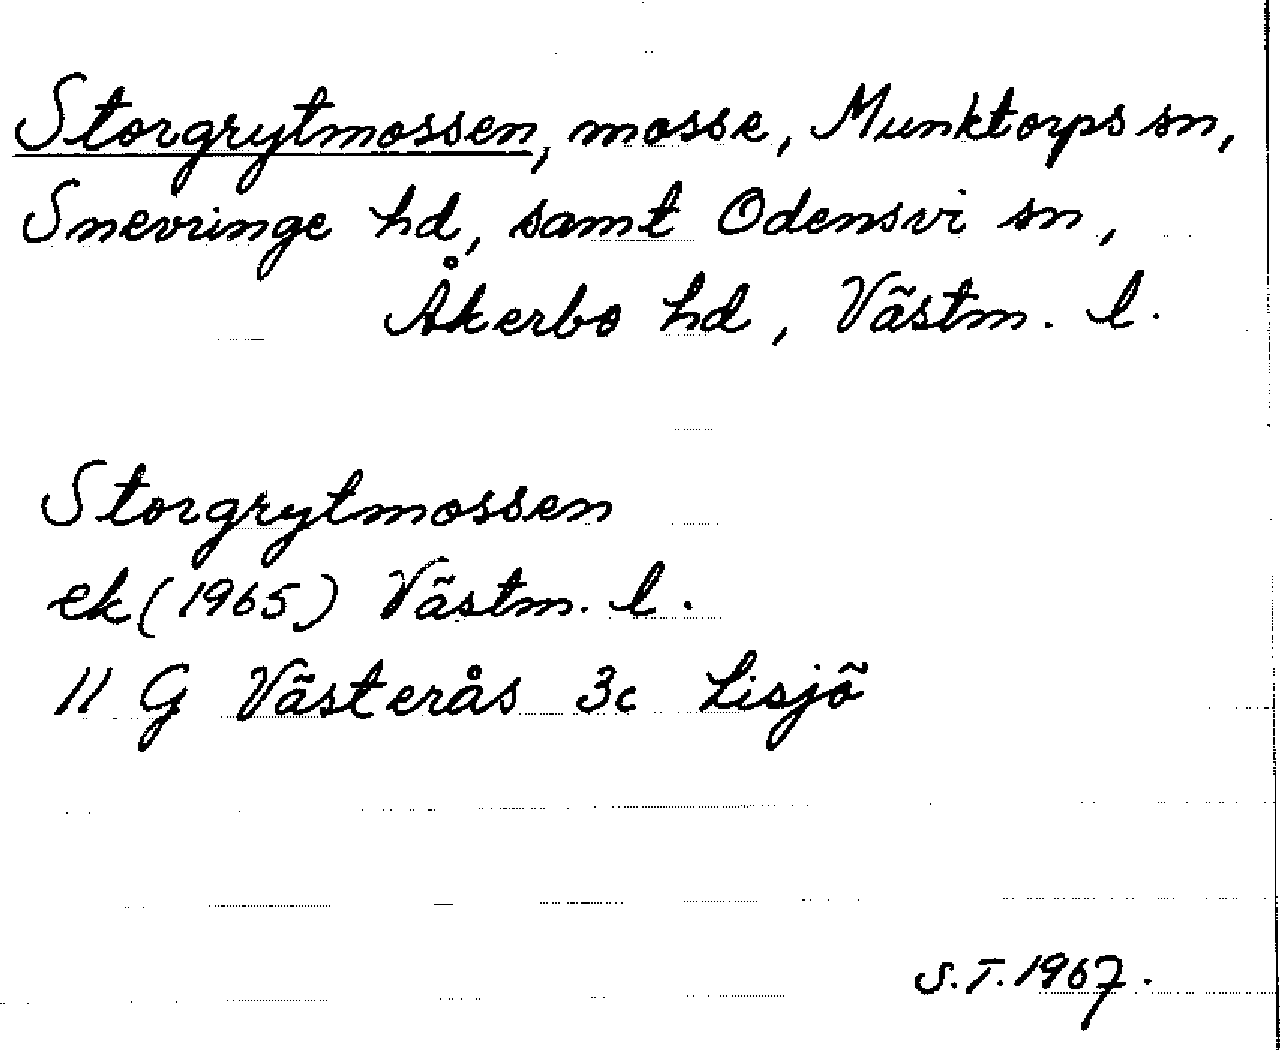 Storgrytmossen, mosse, Munktorps sn,
Snevringe hd, samt Odensvi sn,
Åkerbo hd, Västm. l.
Storgrytmossen
ek (1965) Västm. l.
11 G Västerås 3c Lisjö
S.T. 1967.